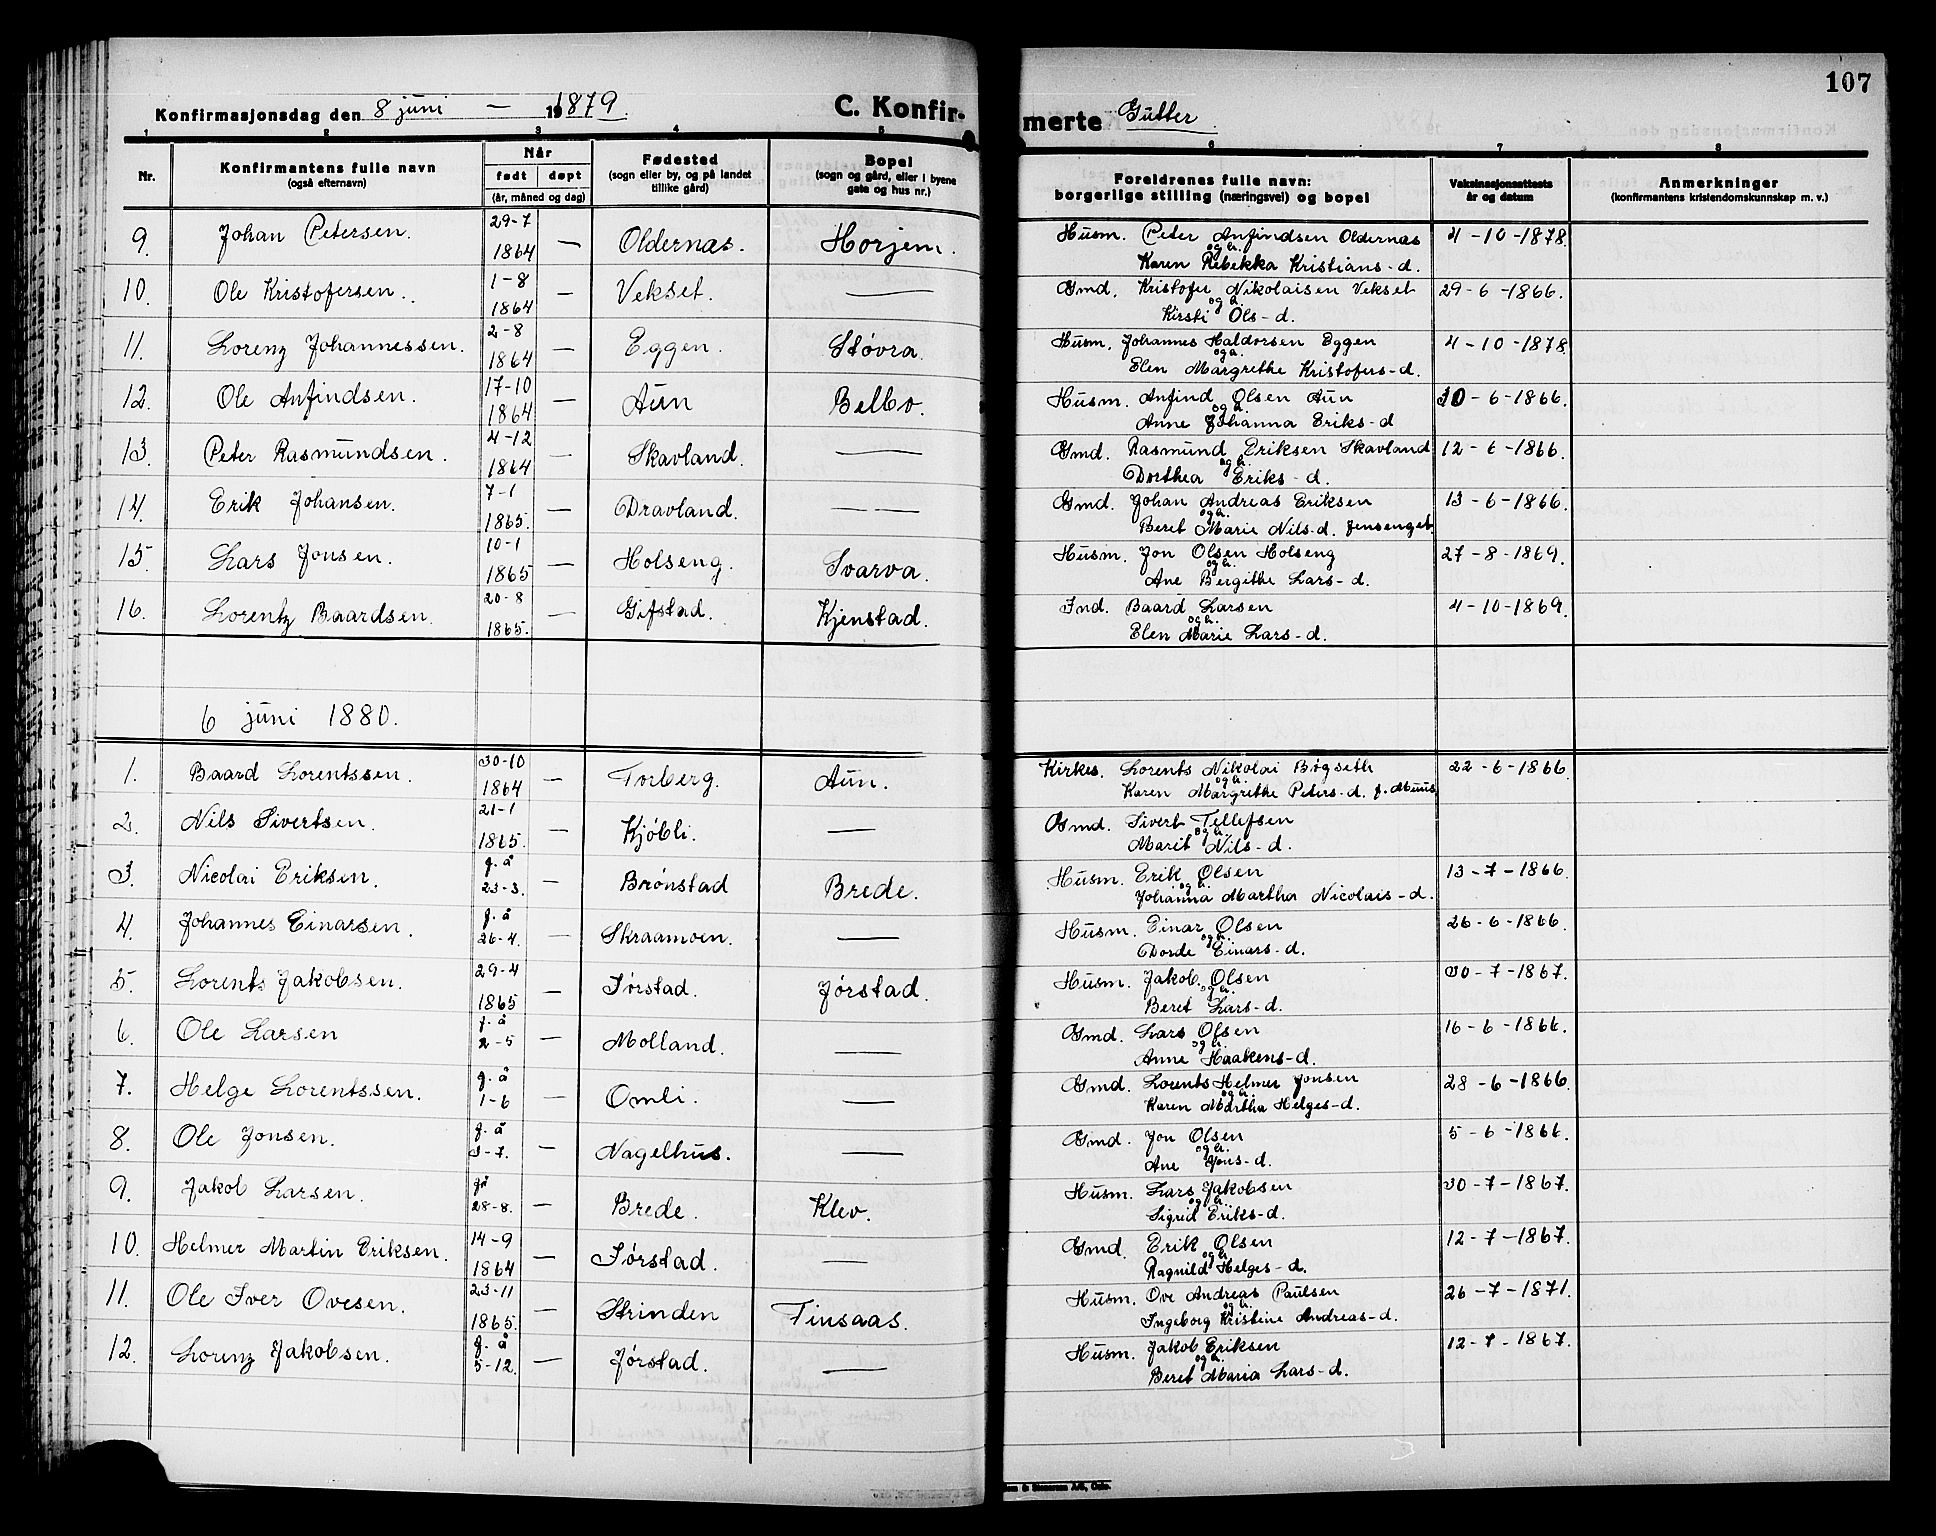 107
Konfirmasjonsdag den 8 juni — 1879. C. Konfirmerte Gutter.
1 2 3 4 5 6 7 8
Nr. Konfirmantens fulle navn (også efternavn) Når født døpt (år, måned og dag) Fødested (sogn eller by, og på landet tillike gård) Bopel (sogn og gård, eller i byene gate og hus nr.) Foreldrenes fulle navn: borgerlige stilling (næringsvei) og bopel Vaksinasjonsattests år og datum Anmerkninger (konfirmantens kristendomskunnskap m. v.)
9. Johan Petersen. 29-7 1864 — Oldernæs. Horjem. Husm. Peter Anfindsen Oldernæs og h. Karen Rebekka Kristians-d. 4-10-1878.
10. Ole Kristofersen. 1-8 1864 — Vekset. — Gmd. Kristofer Nikolaisen Vekset og h. Kirsti Ols-d. 29-6-1866.
11. Lorenz Johannessen. 2-8 1864 — Eggen. Støvra. Husm. Johannes Haldorsen Eggen og h. Elen Margrethe Kristofers-d. 4-10-1878.
12. Ole Anfindsen. 17-10 1864 — Aun Belbo. Husm. Anfind Olsen Aun og h. Anne Johanna Eriks-d 30-6-1866.
13. Peter Rasmundsen. 4-12 1864 — Skavland. — Gmd. Rasmund Eriksen Skavland og h. Dorthea Eriks-d. 12-6-1866.
14. Erik Johansen. 7-1 1865. — Dravland. — — Gmd. Johan Andreas Eriksen og h. Beret Marie Nils-d. Jensenget. 13-6-1866.
15. Lars Jonsen. 10-1 1865 — Holseng. Svarva. Husm. Jon Olsen Holseng og h. Ane Bergithe Lars-d. 27-8-1869.
16. Lorentz Baardsen. 20-8 1865. — Gifstad. Kjenstad. Ind. Baard Larsen og h. Elen Marie Lars-d. 4-10-1869.
6 juni 1880.
1. Baard Lorentssen. 30-10 1864 — Torberg. Aun. Kirkes. Lorents Nikolai Bøgseth og h. Karen Margrethe Peters-d. f. Muus. 22-6-1866.
2. Nils Sivertsen. 21-1 1865. — Kjøbli. — Gmd. Sivert Tellefsen og h. Marit Nils-d.
3. Nicolai Eriksen. f. å 23-3. — Brønstad Brede. Husm. Erik Olsen og h. Johanna Martha Nicolais-d. 13-7-1866.
4. Johannes Einarsen. f. å 26-4. — Skraamoen. — Husm. Einar Olsen og h. Dorde Einars-d. 26-6-1866.
5. Lorents Jakobsen. 29-4 1865 — Jørstad. Jørstad. Husm. Jakob Olsen og h. Beret Lars-d. 30-7-1867.
6. Ole Larsen f. å 2-5 — Molland. — Gmd. Lars Olsen og h. Anne Haakens-d. 16-6-1866.
7. Helge Lorentssen. f. å 1-6 — Omli. — Gmd. Lorents Helmer Jonsen og h. Karen Martha Helges-d. 28-6-1866.
8. Ole Jonsen. f. å 3-7. — Nagelhus. — Gmd. Jon Olsen og h. Ane Jons-d. 5-6-1866.
9. Jakob Larsen. få 28-8. — Brede. Klev. Husm. Lars Jakobsen og h. Sigrid Eriks-d. 30-7-1867.
10. Helmer Martin Eriksen. 14-9 1864 — Jørstad. — Gmd. Erik Olsen og h. Ragnild Helges-d. 12-7-1867.
11. Ole Iver Ovesen. 23-11 1865. — Strinden Finsaas. Husm. Ove Andreas Paulsen og h. Ingeborg Kristine Andreas-d. 26-7-1871.
12. Lorenz Jakobsen. f. å 5-12. — Jørstad. — Husm. Jakob Eriksen og h. Beret Maria Lars-d. 12-7-1867.